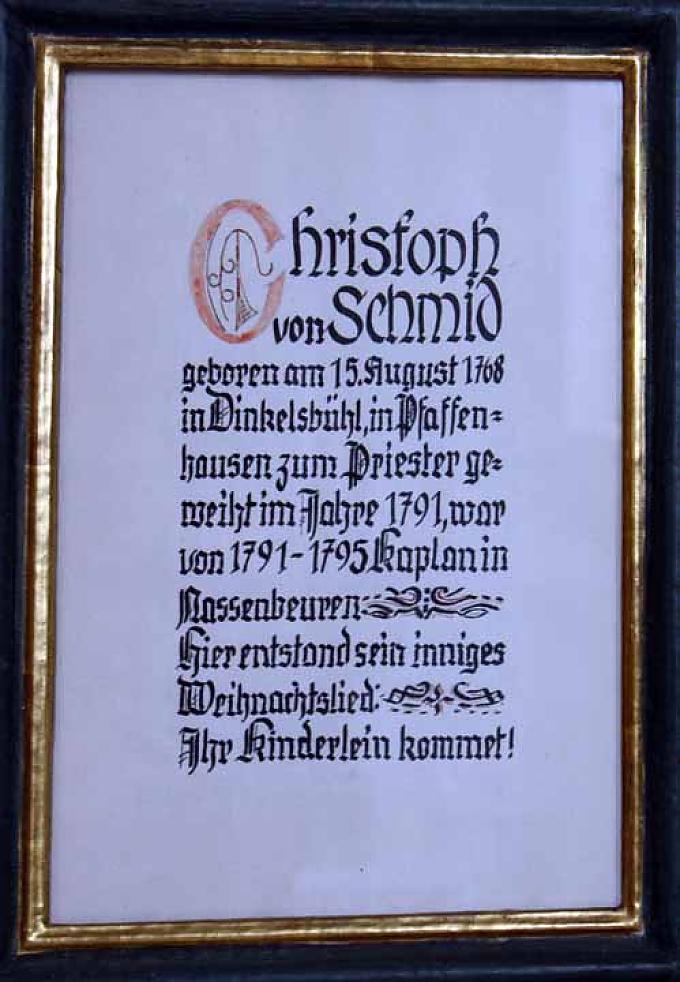 Christoph
von Schmid
geboren am 15. August 1768
in Dinkelsbühl, in Pfaffen=
hausen zum Priester ge=
weiht im Jahre 1791, war
von 1791-1795 Kaplan in
Nassenbeuren.
Hier entstand sein inniges
Weihnachtslied:
Ihr Kinderlein kommet!